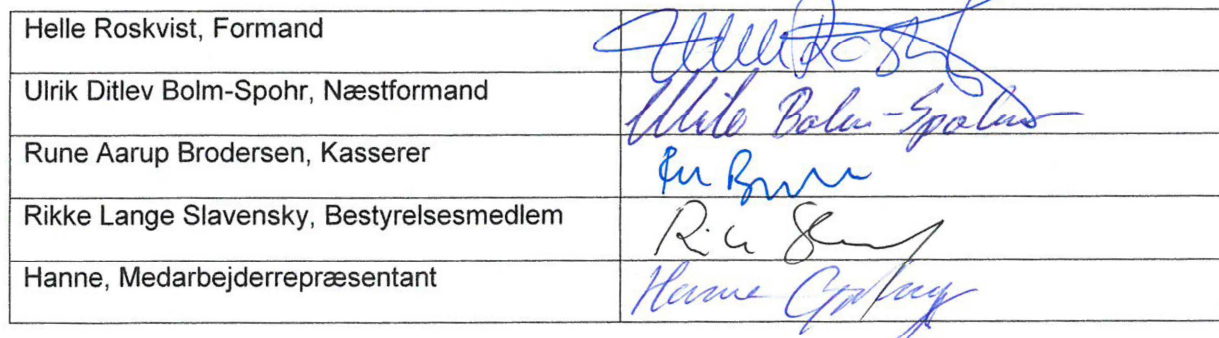 Helle Roskvist, Formand
Ulrik Ditlev Bolm-Spohr, Næstformand
Bolm-Spohr
Rune Aarup Brodersen, Kasserer
Rikke Lange Slavensky, Bestyrelsesmedlem
Hanne, Medarbejderrepræsentant
Hanne